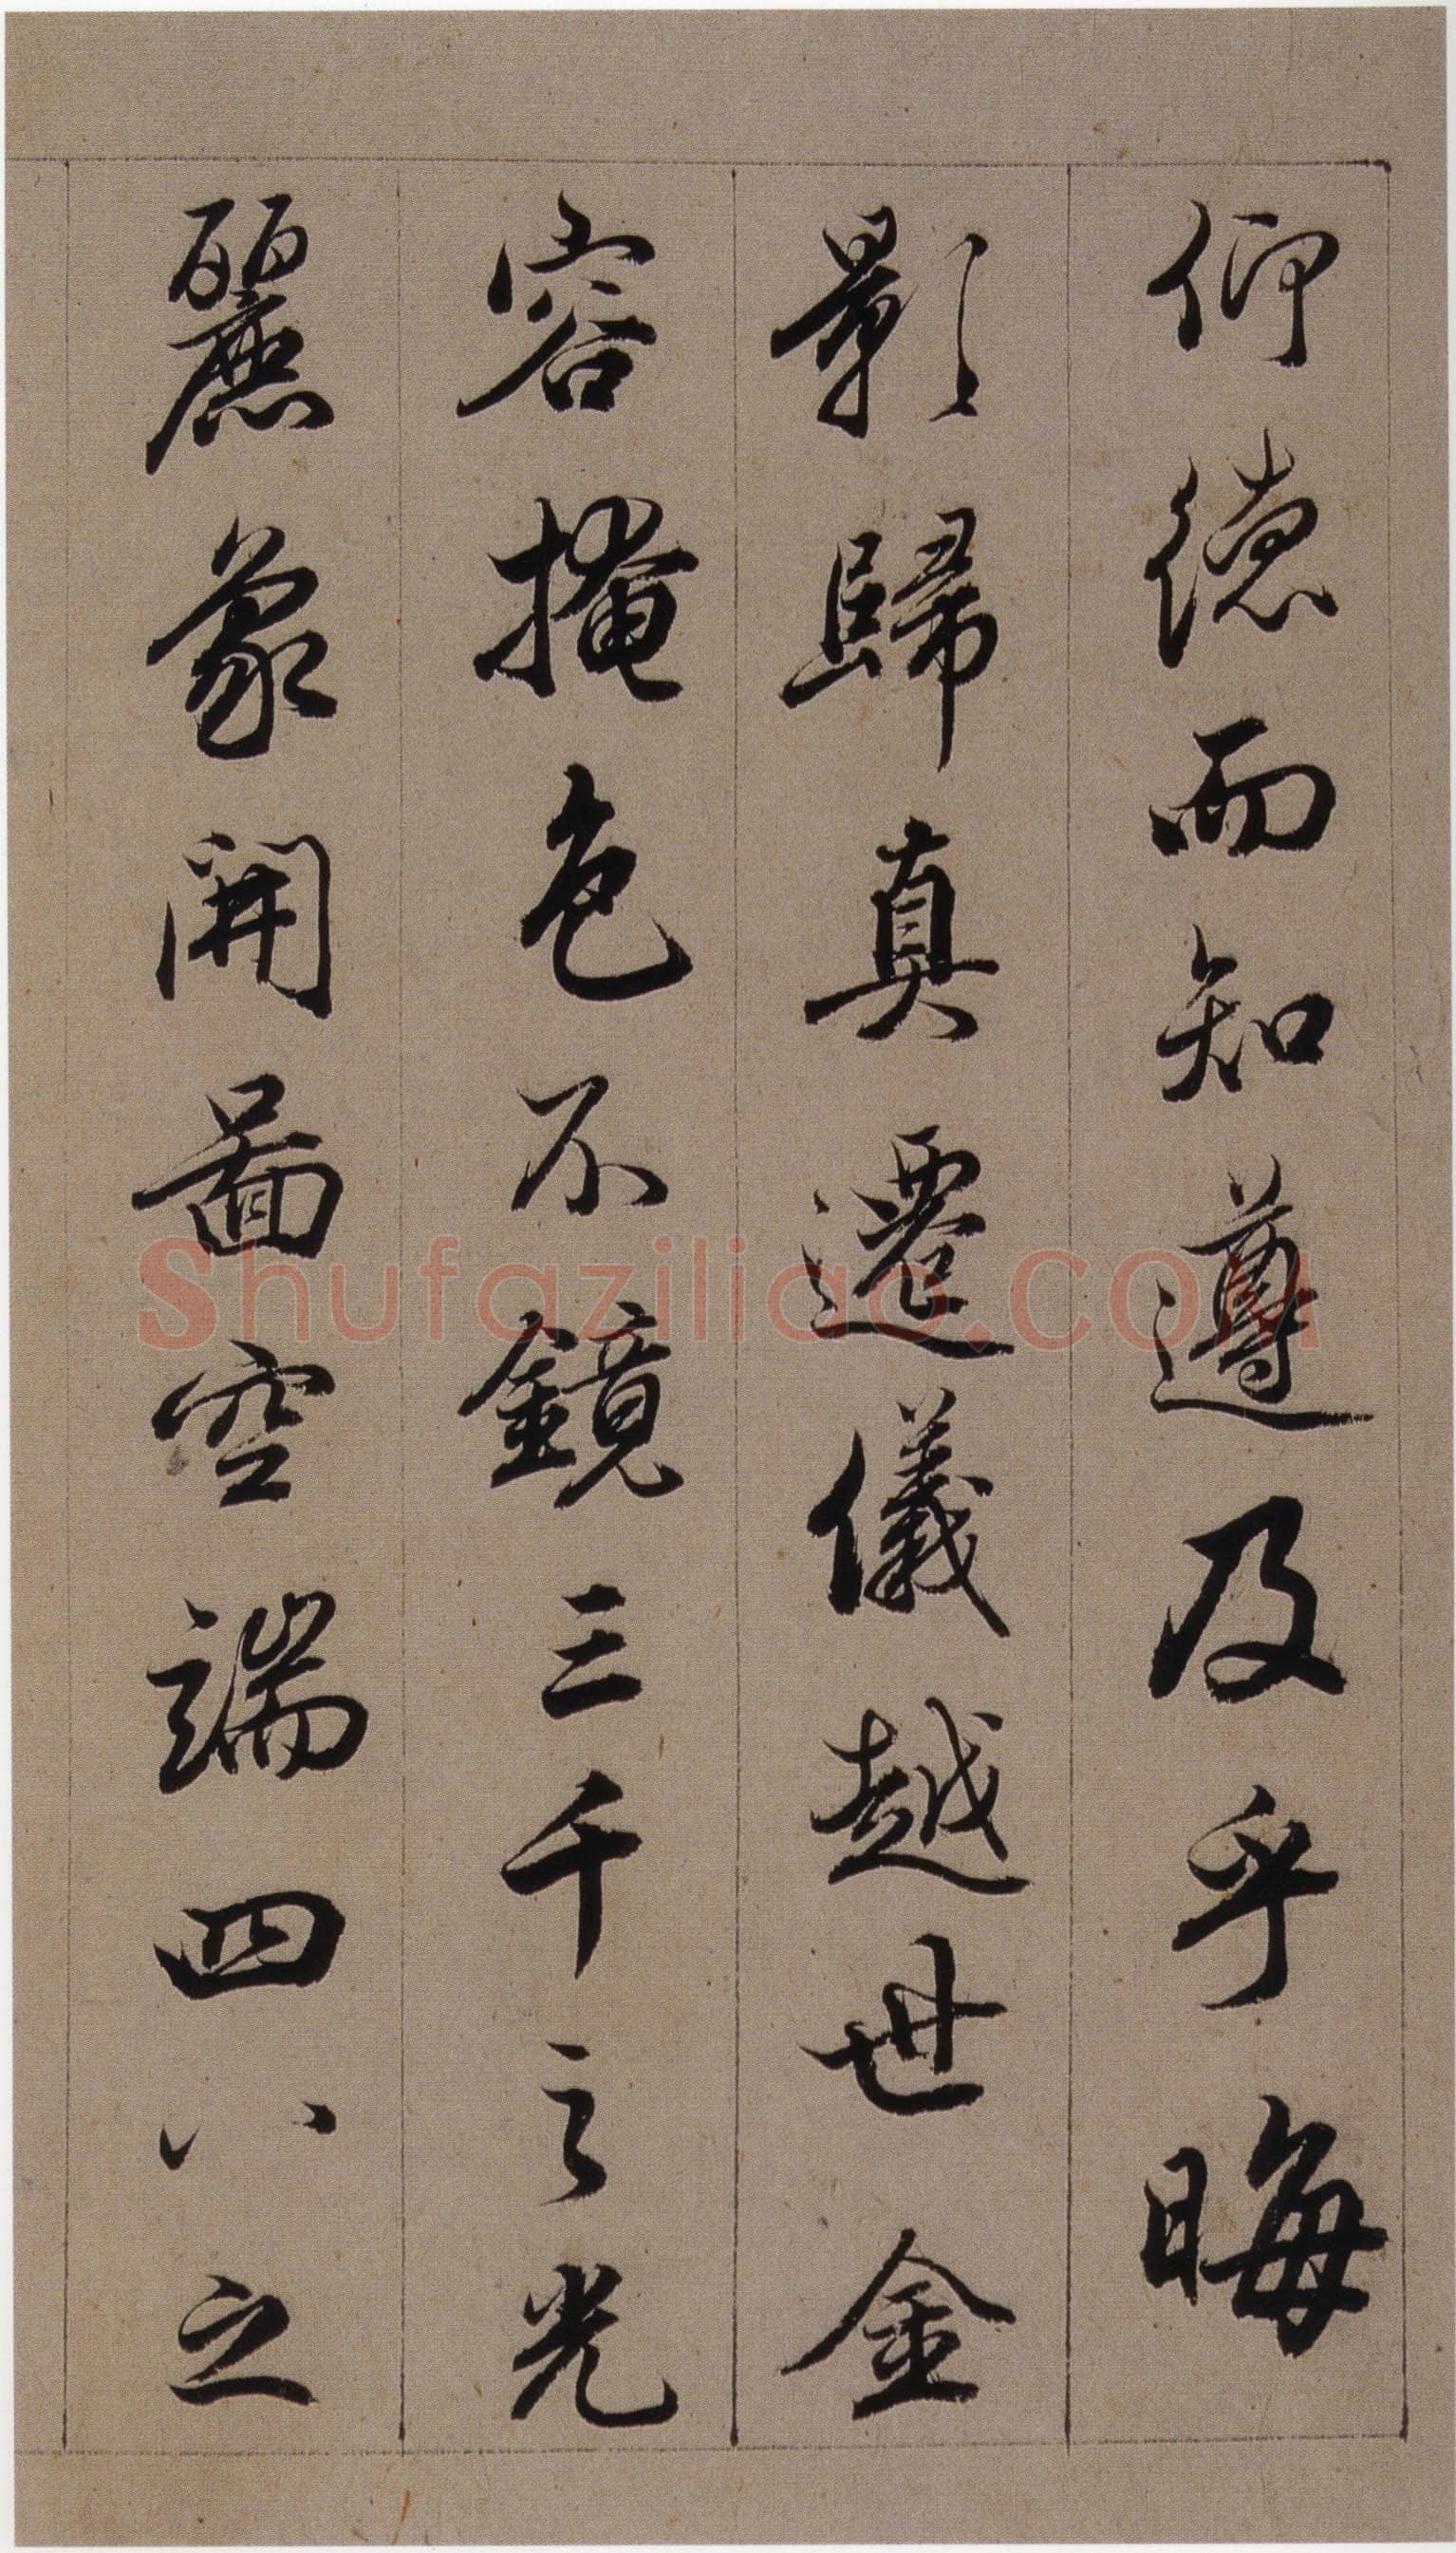 仰德而知遵及乎晦
影歸真遷儀越世金
容掩色不鏡三千之光
麗象開圖空端四八之
Shufaziliao.com